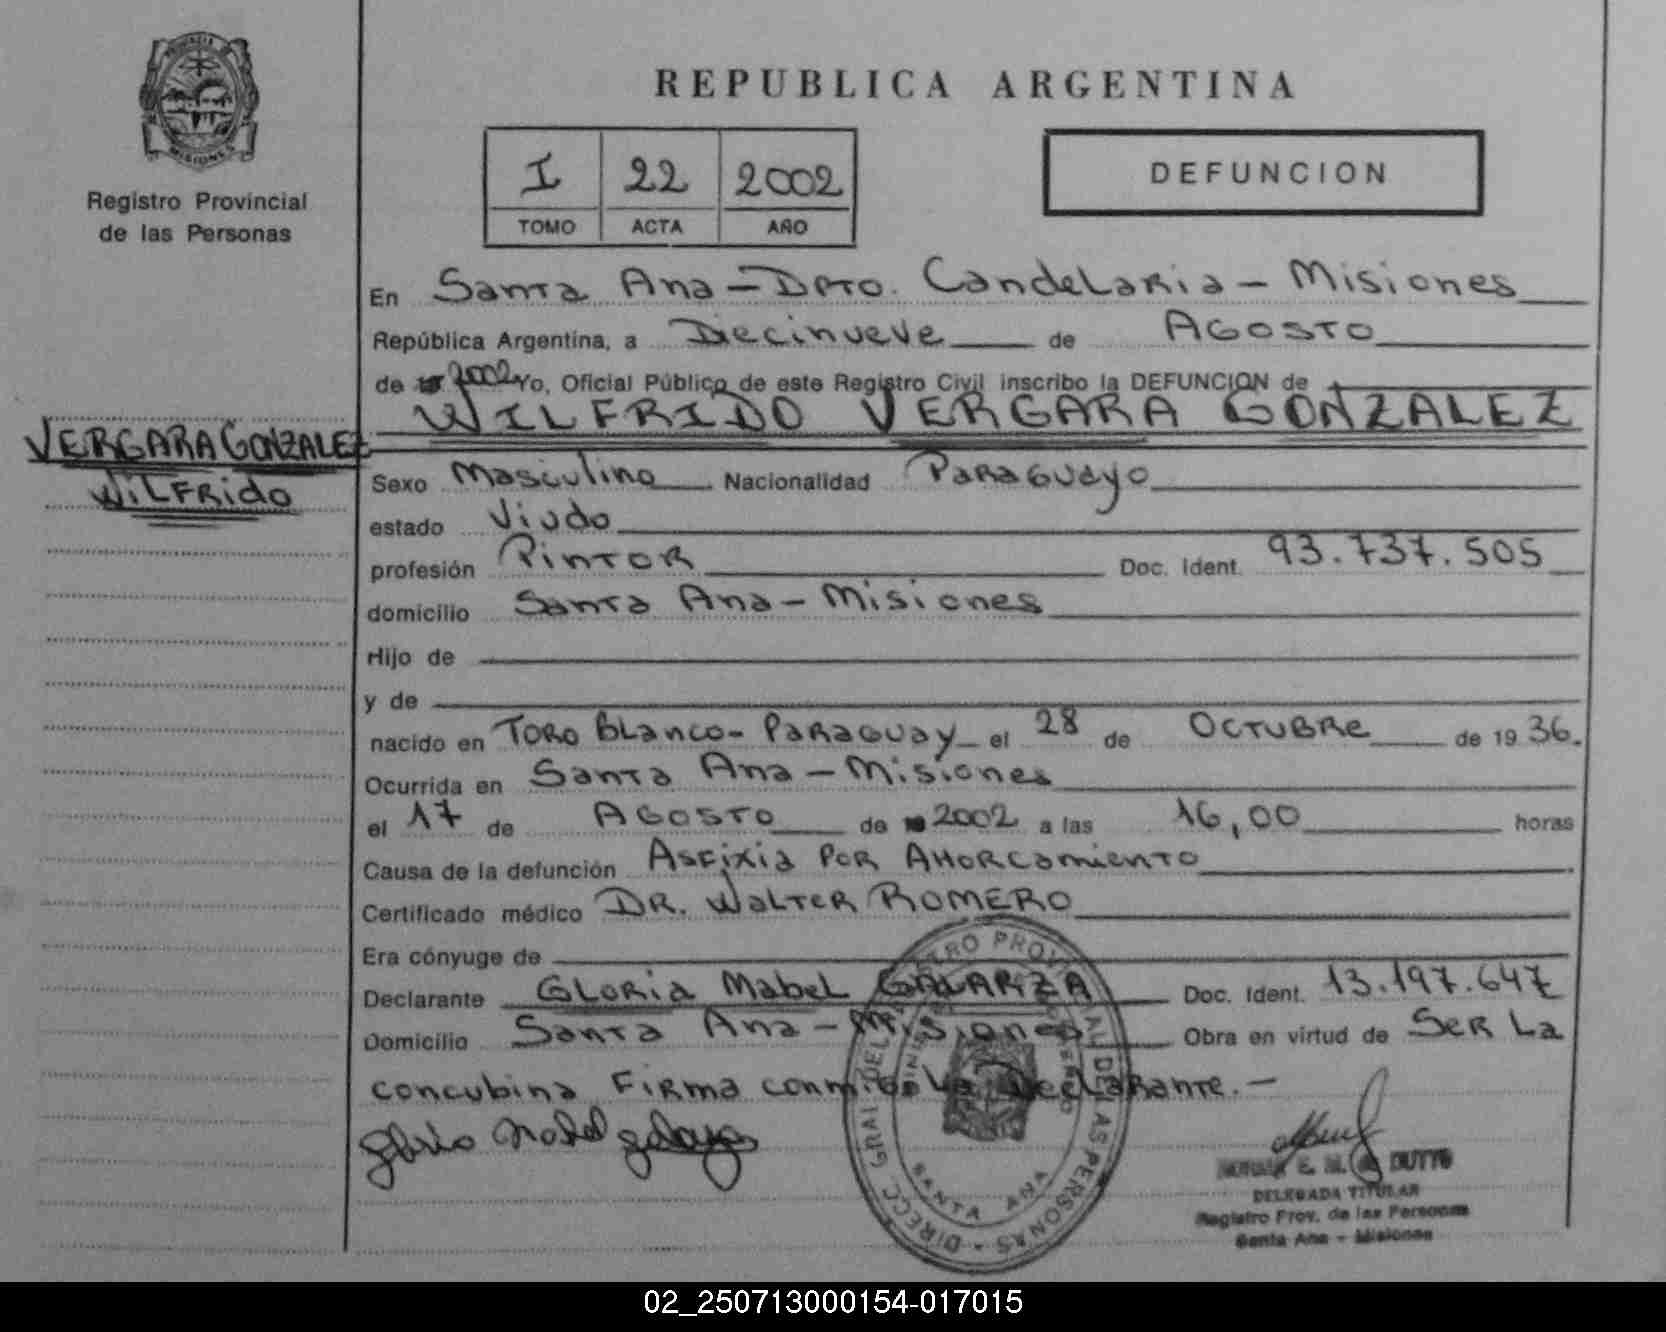 PROVINCIA DE
MISIONES
Registro Provincial
de las Personas
REPUBLICA ARGENTINA
I 22 2002
TOMO ACTA AÑO
DEFUNCION
En Santa Ana - Dpto. Candelaria - Misiones
República Argentina, a Diecinueve de Agosto
de 2002 Yo, Oficial Público de este Registro Civil inscribo la DEFUNCION de
WILFRIDO VERGARA GONZALEZ
VERGARA GONZALEZ
WILFRIDO
Sexo Masculino Nacionalidad Paraguayo
estado Viudo
profesión Pintor Doc. Ident. 93.737.505
domicilio Santa Ana - Misiones
Hijo de
y de
nacido en Toro Blanco - Paraguay el 28 de Octubre de 1936.
Ocurrida en Santa Ana - Misiones
el 17 de Agosto de 2002 a las 16,00 horas
Causa de la defunción Asfixia por Ahorcamiento
Certificado médico DR. Walter Romero
Era cónyuge de
Declarante Gloria Mabel GALARZA Doc. Ident. 13.197.647
Domicilio Santa Ana - Misiones Obra en virtud de Ser La
concubina Firma conmigo La Declarante. -
DIRECC. GRAL DEL REGISTRO PROVINCIAL DE LAS PERSONAS
SANTA ANA
E. M. DUTTO
DELEGADA TITULAR
Registro Prov. de las Personas
Santa Ana - Misiones
02_250713000154-017015